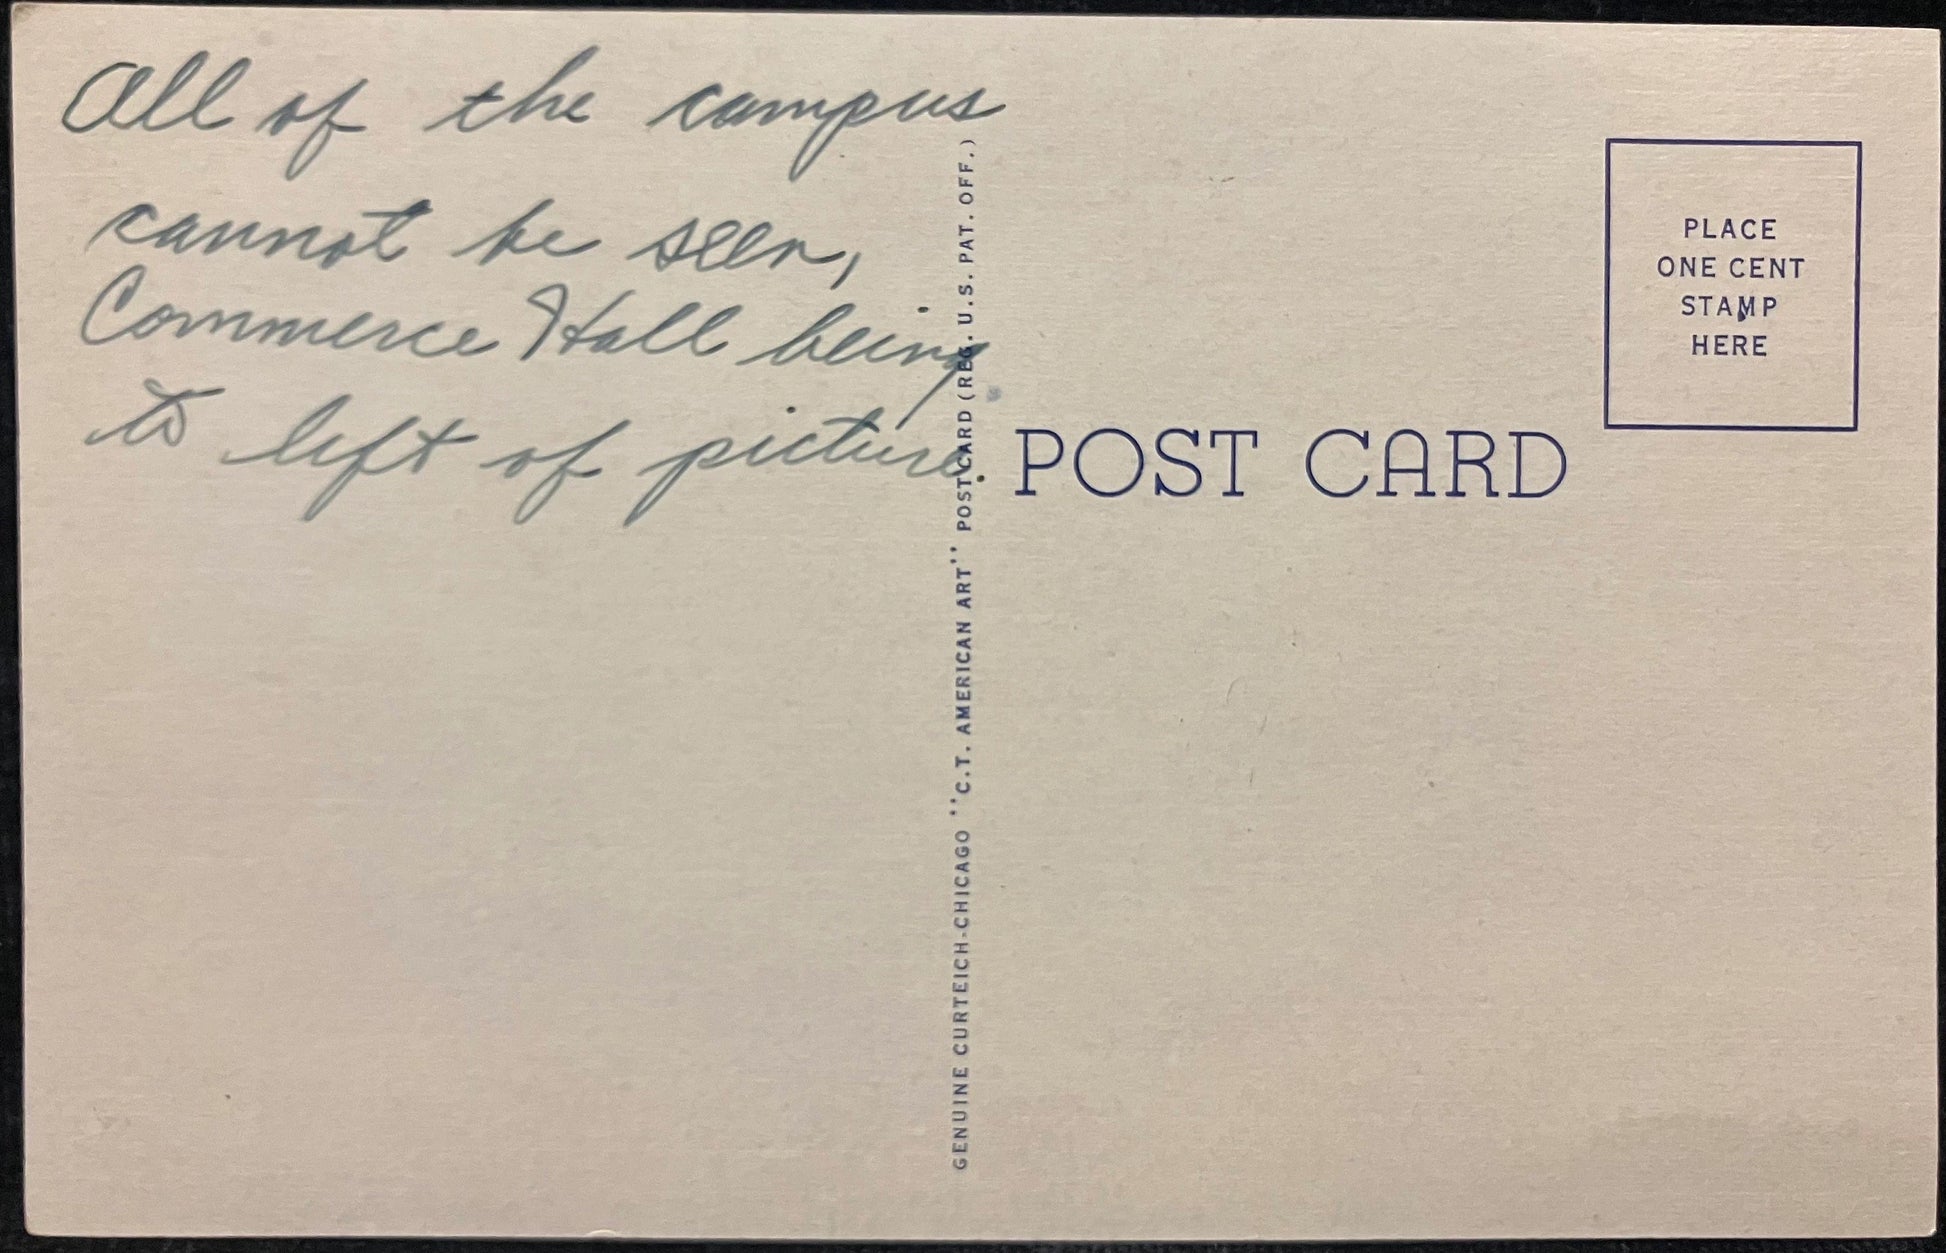 All of the campus
cannot be seen,
Commerce Hall being
to left of picture.
GENUINE CURTEICH-CHICAGO "C.T. AMERICAN ART" POST CARD (REG. U.S. PAT. OFF.)
POST CARD
PLACE
ONE CENT
STAMP
HERE